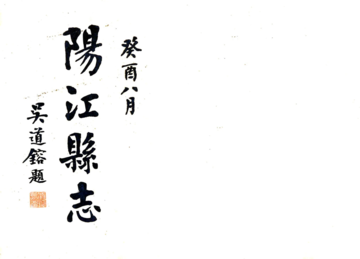 癸酉八月
陽江縣志
吴道鎔題